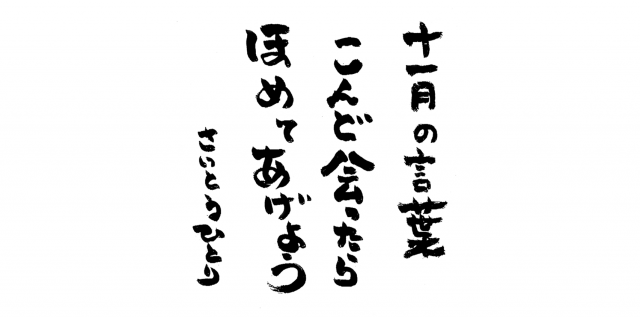 十一月の言葉
こんど会ったら
ほめてあげよう
さいとうひとり